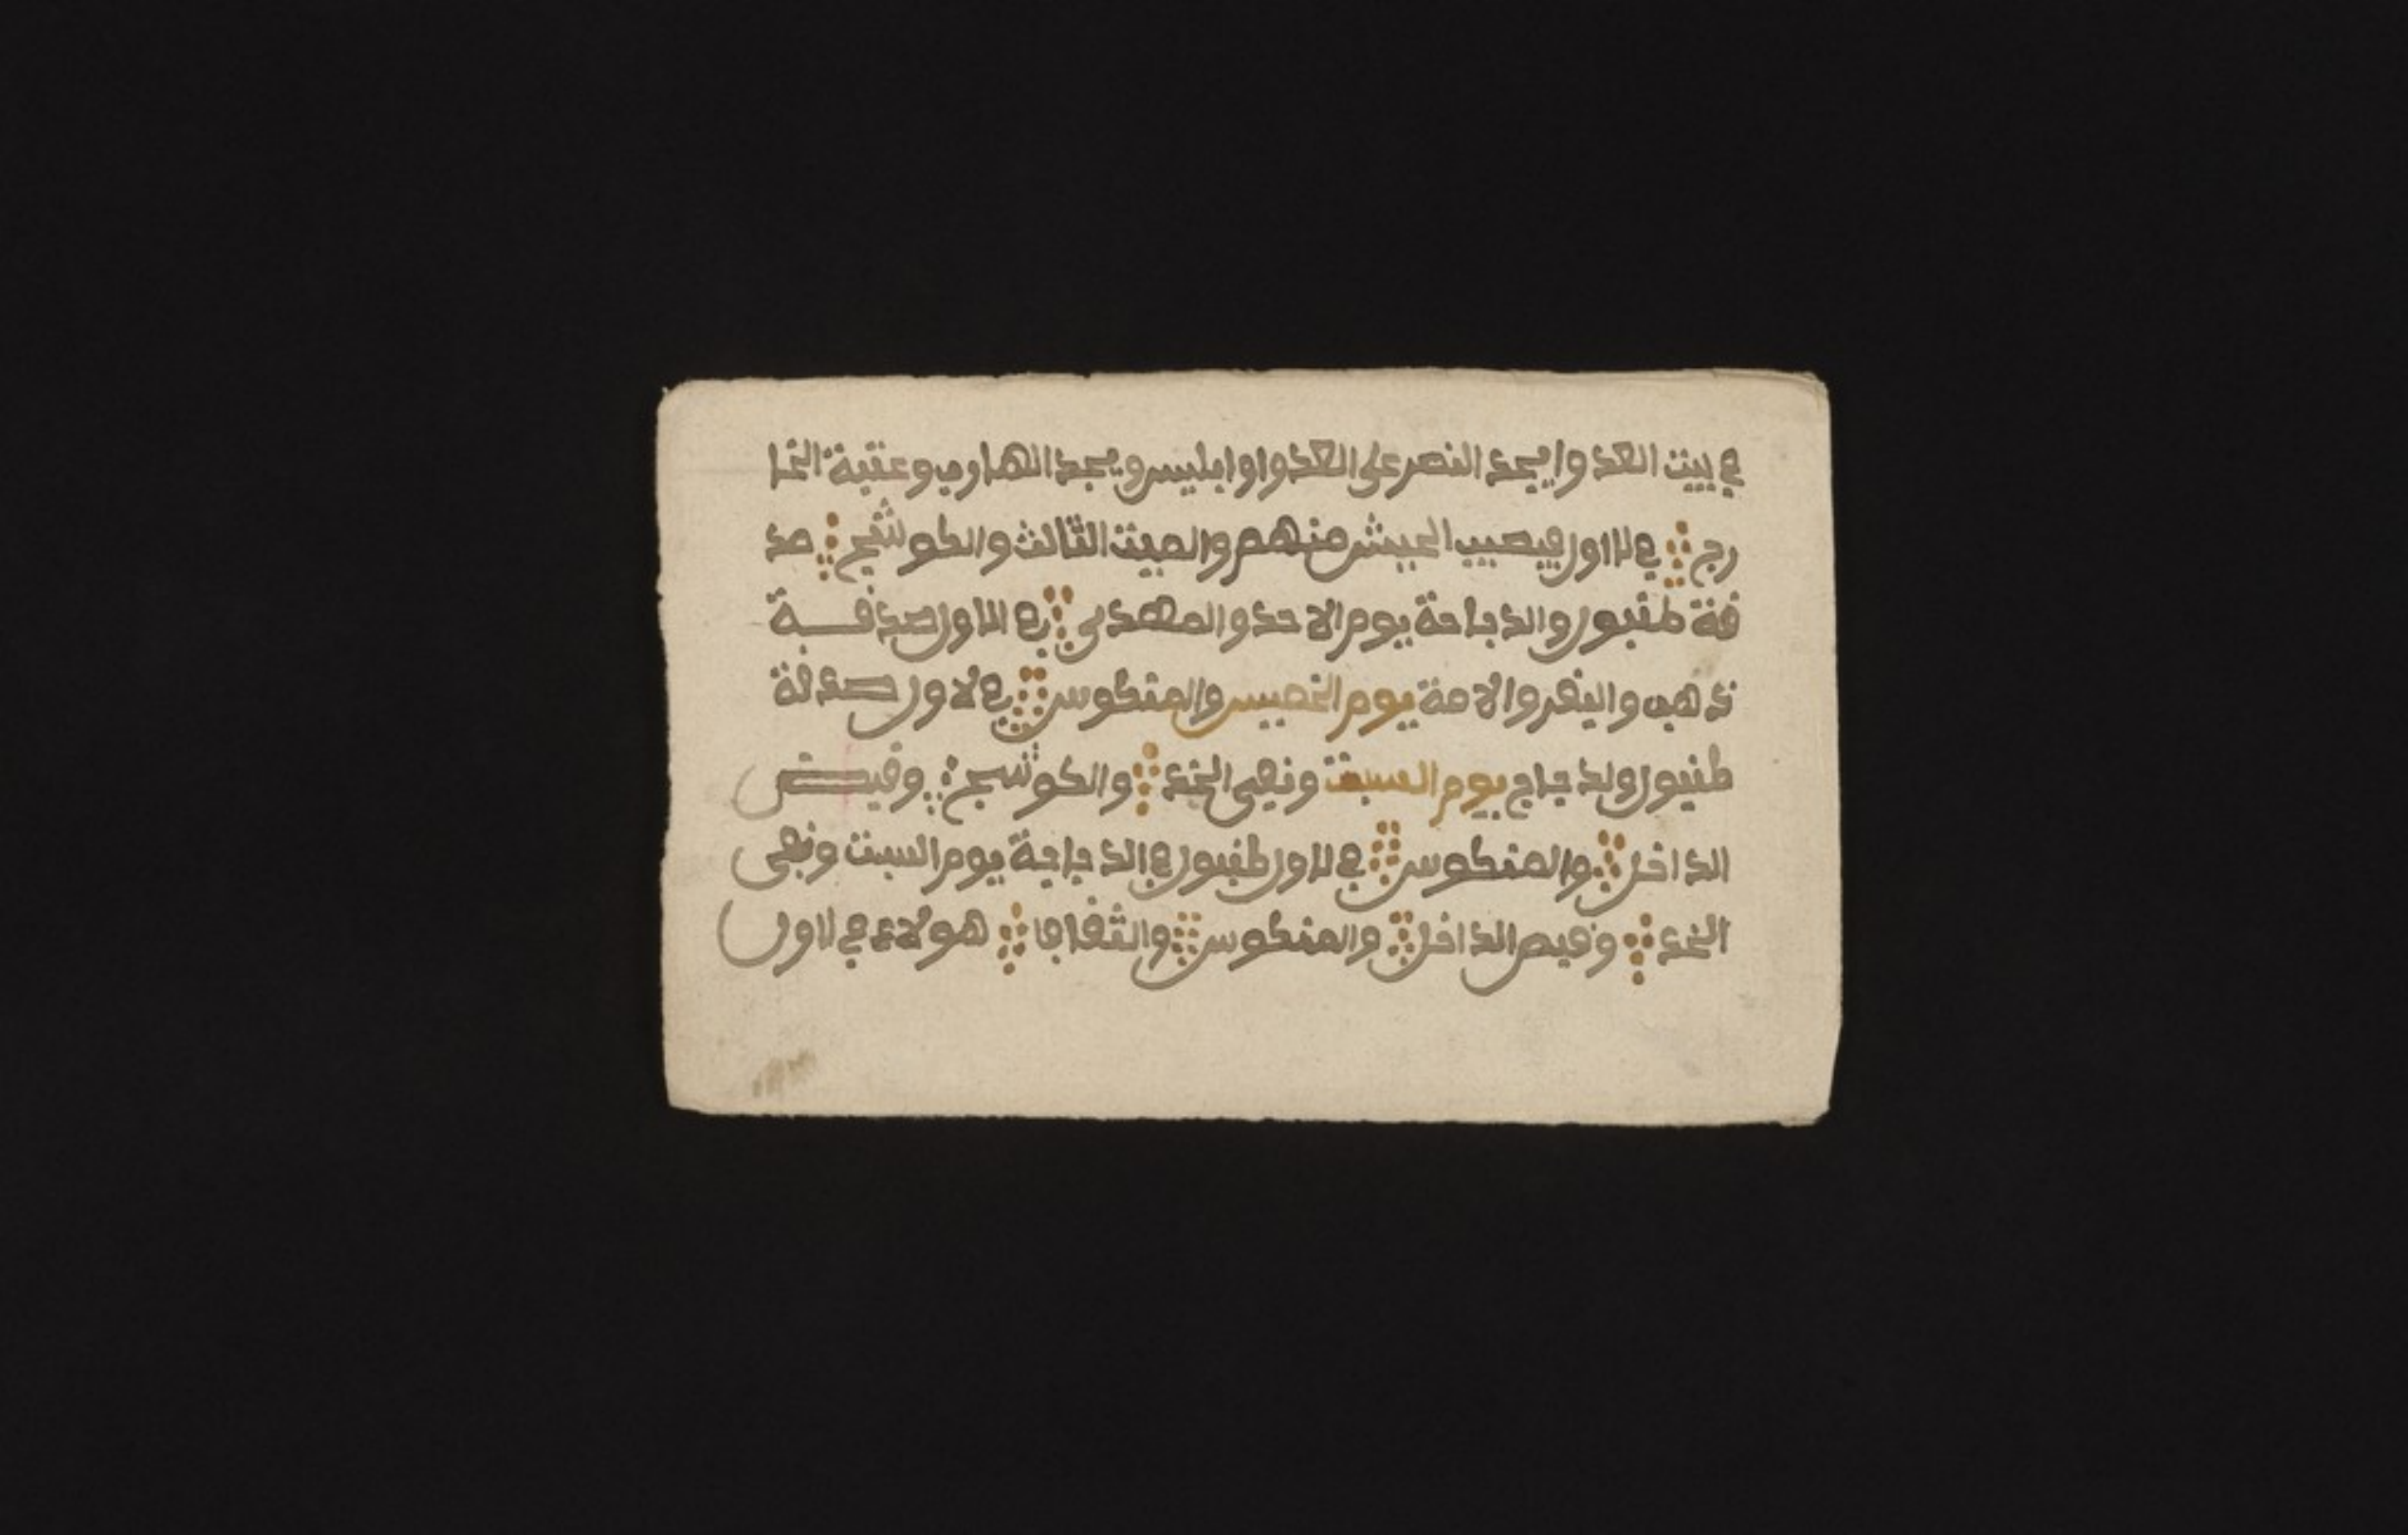 في بيت العدوا يجد النصر على العدوا وابليس ويجد الهارب وعتبة الخا
رج في لااول فيصيب الجيش منهم والبيت الثالث والكوشج صد
قة طنبور والدجاجة يوم الاحد والمهدي في الااول صدقـــة
ذهب والبقر والامة يوم الخميس والمنكوس في لاول صدقة
طنبور ولدجاج يوم السبت ونهي الخد والكوشج وقبـــض
الداخل والمنكوس في لاول طنبور في الدجاجة يوم السبت ونهى
الخد وقبض الداخل والمنكوس والثقاف هولاء في لااول